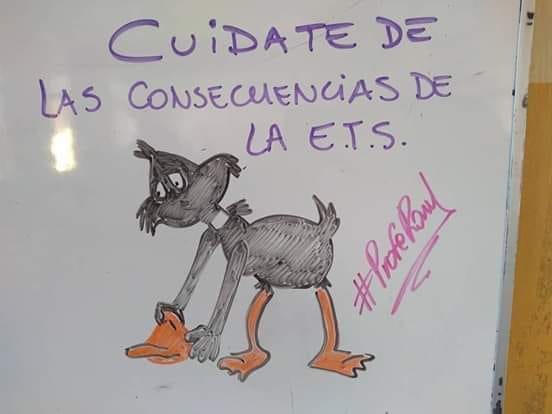 CUIDATE DE
LAS CONSECUENCIAS DE
LA E.T.S.
#ProfeRaul